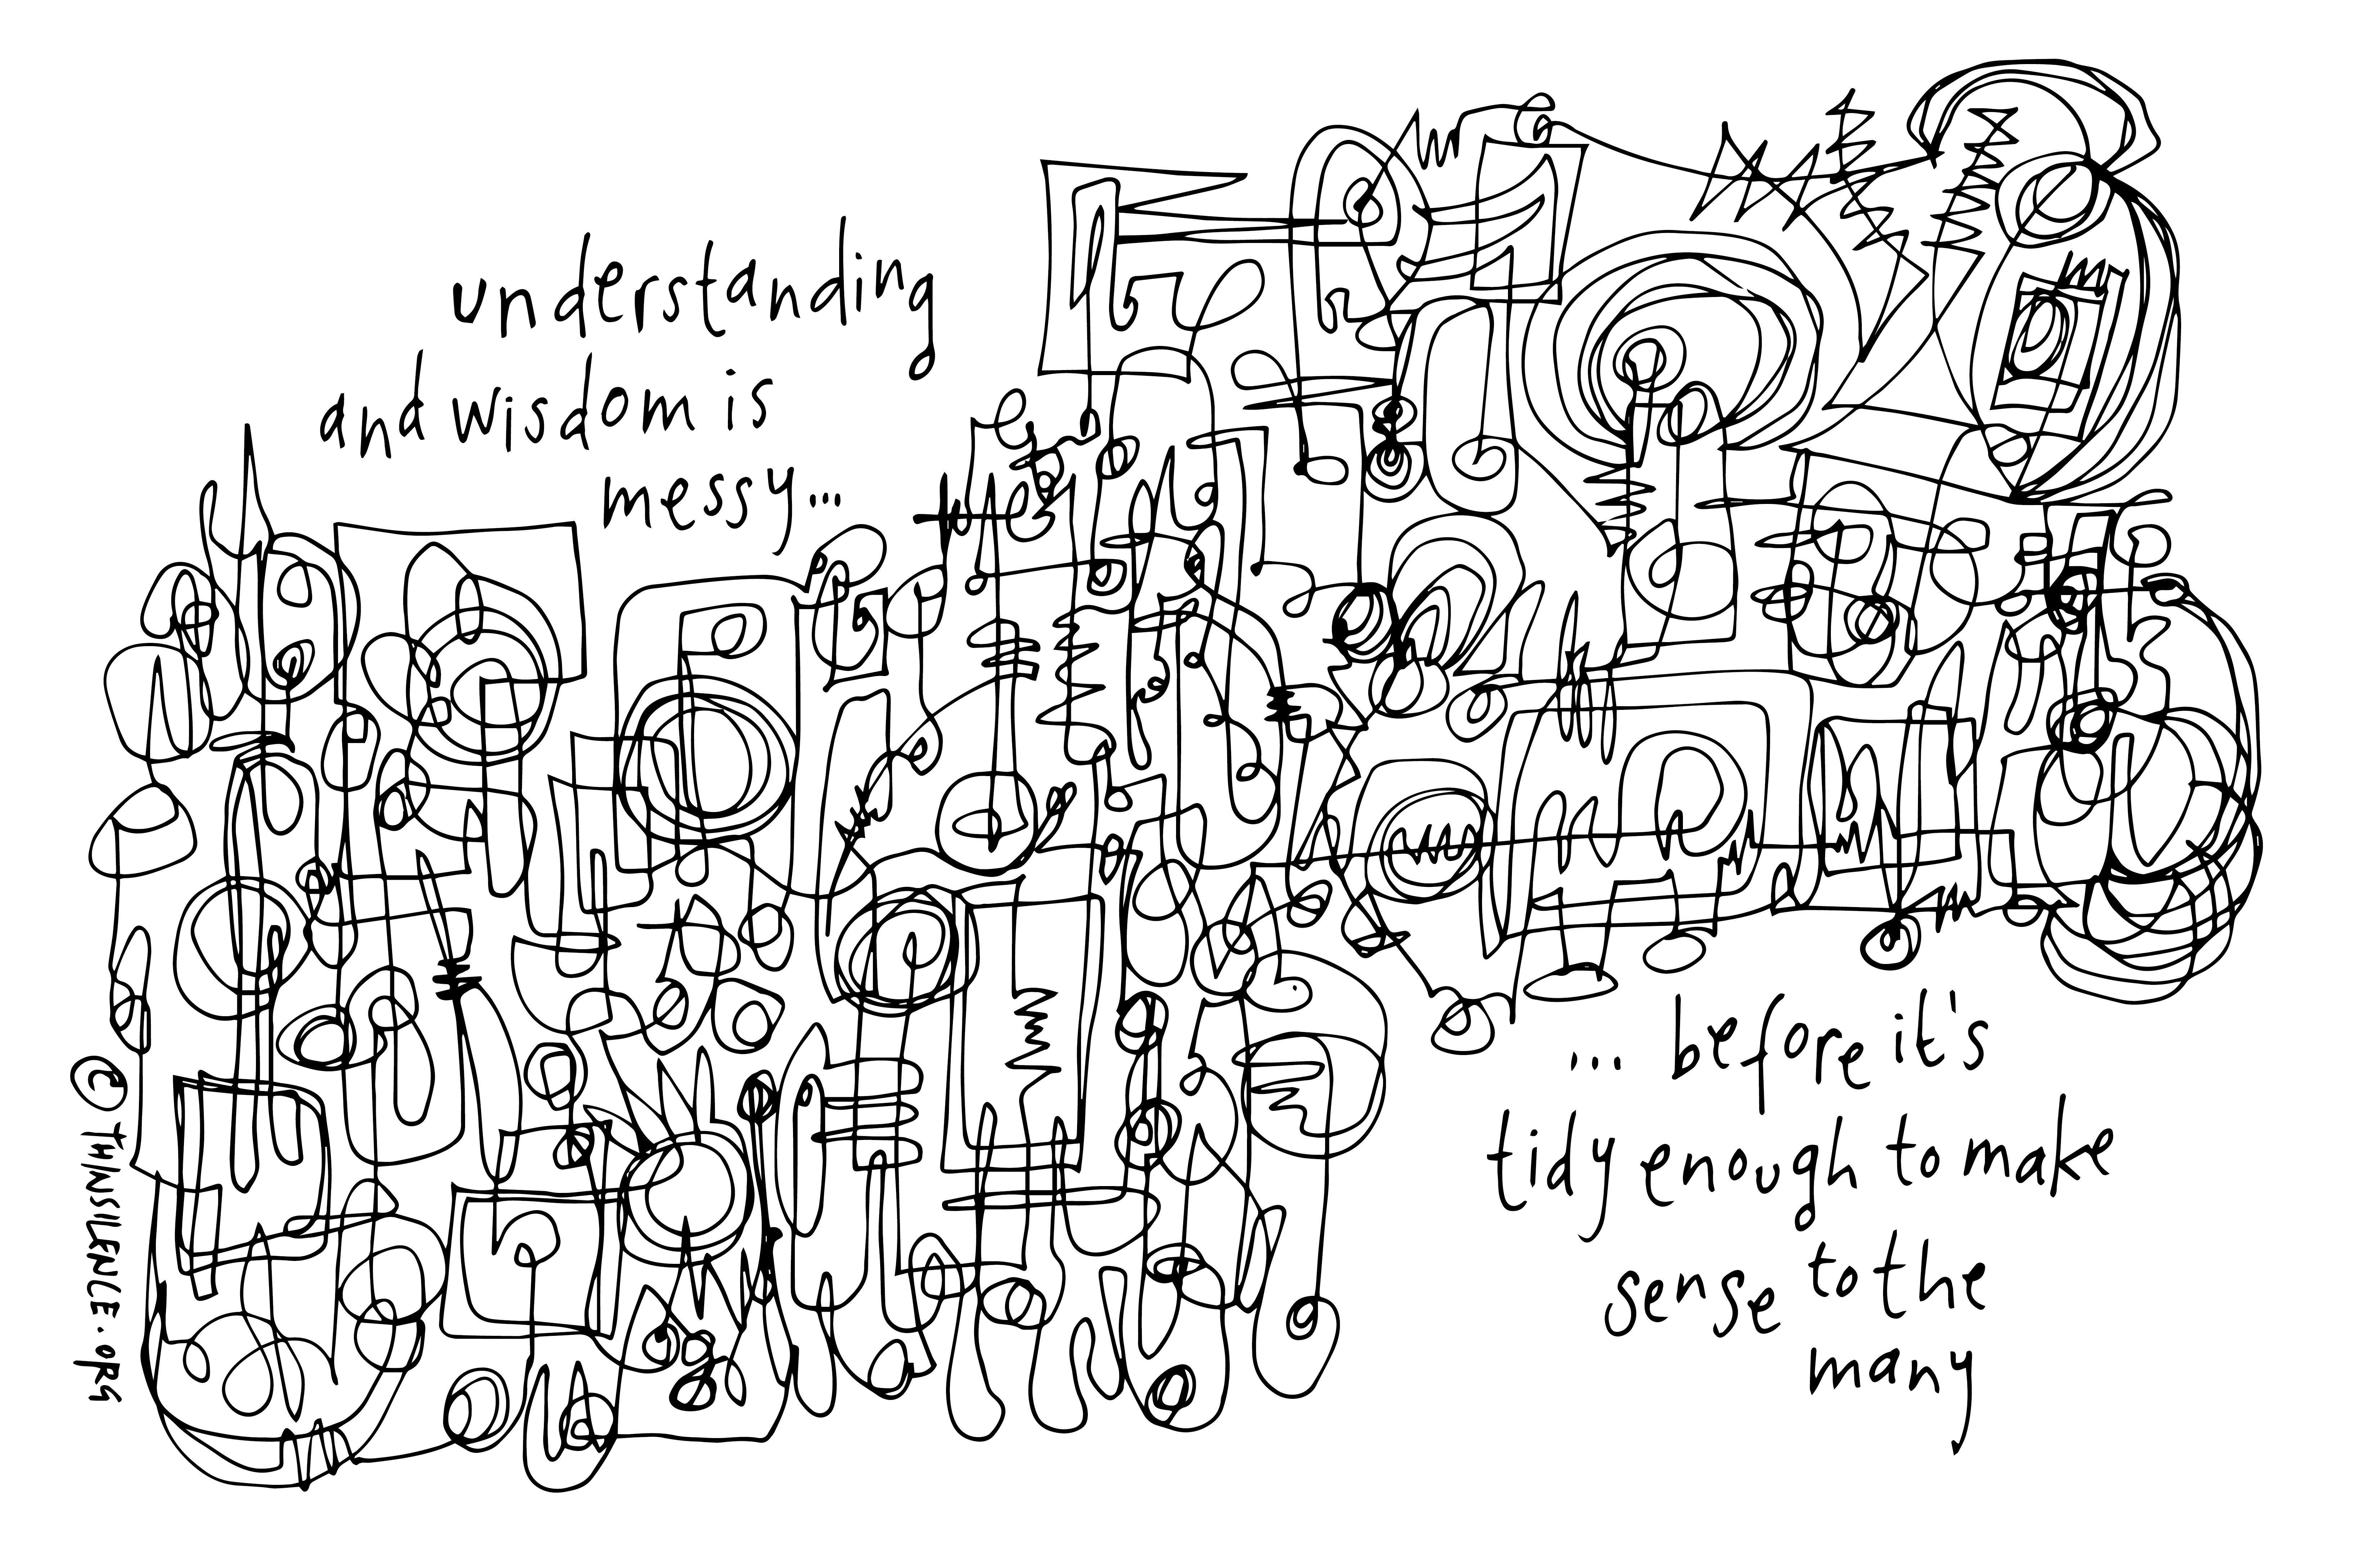 understanding
and wisdom is
messy...
... before it's
tidy enough to make
sense to the
many
@THINKINKDANCE.ORG